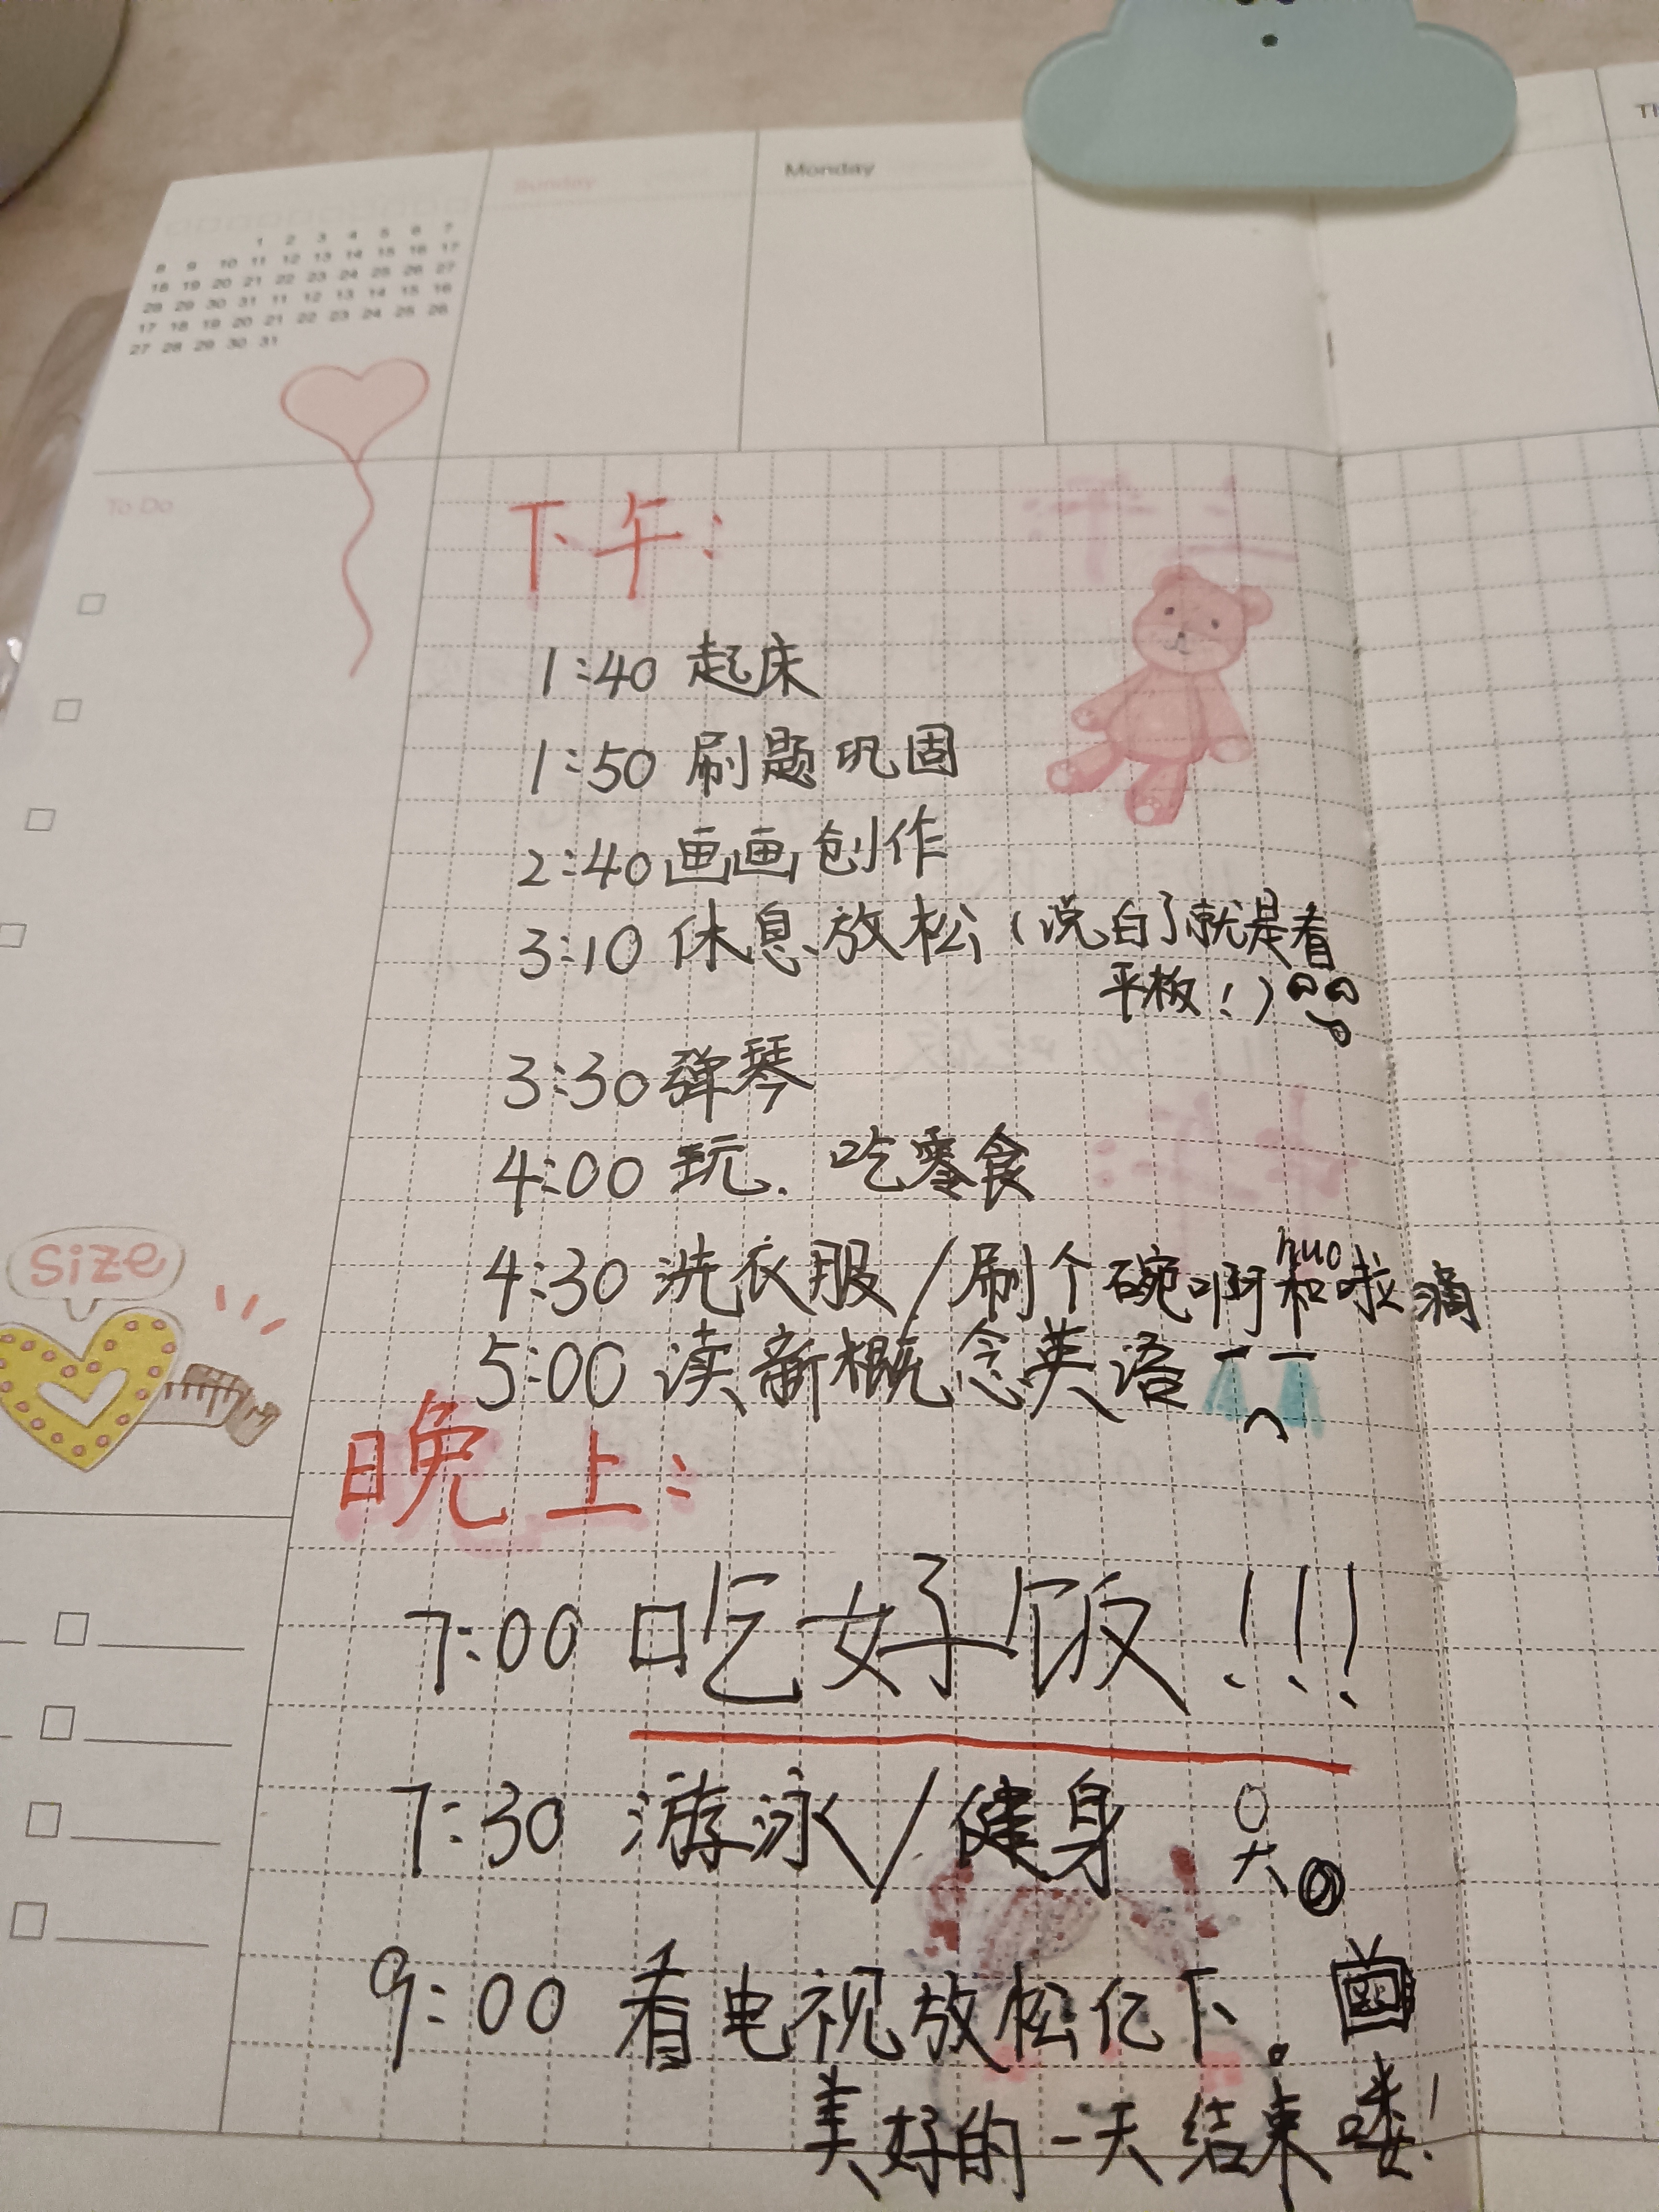 Sunday
Monday
1 2 3 4 5 6 7
8 9 10 11 12 13 14 15 16 17
18 19 20 21 22 23 24 25 26 27
28 29 30 31 11 12 13 14 15 16
17 18 19 20 21 22 23 24 25 26
27 28 29 30 31
To Do
下午:
1:40 起床
1:50 刷题巩固
2:40 画画创作
3:10 休息、放松(说白了就是看
平板!)
3:30 弹琴
4:00 玩. 吃零食
size
nuo
4:30 洗衣服/刷个碗啊和啦滴
5:00 读新概念英语
晚上:
7:00 吃好饭!!!
7:30 游泳/健身
9:00 看电视放松亿下。
美好的一天结束喽!